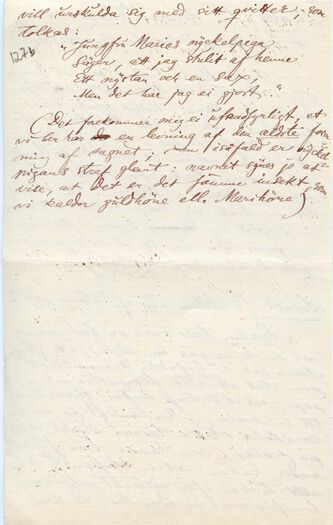 vill urskulda sig med sitt qvitter, som
tolkas:
127b
"Jungfru Marias nyckelpiga
Säger, att jag stulit af henne
Ett nystan och en sax,
Men det har jag ej gjort."
(Det forekommer mig ei usandsynligt, at
vi her har en levning af den ældste
ning af sagnet; men isåfald er
pigans straf glemt: navnet synes jo at
vise, at det er det samme insekt, som
vi kalder guldhöne ell. Marihöne)